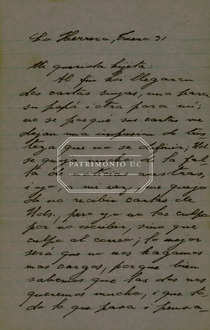 La Herrera, Enero 31
Mi querida hijita:
Al fin nos llegaron
dos cartas suyas, una para
su papá i otra para mi;
no se porqué sus cartas me
dejan una impresion de tris
teza que no se definir, Ud.
se queja de la fal
ta de noticias nuestras
i yo a mi vez me quejo
de no recibir cartas de
Uds., pero yo no las culpo
por no escribir, sino que
culpo al correo; lo mejor
será que no nos hagamos
mas cargos, porque bien
sabemos que las dos nos
queremos mucho, i que to
do lo que pasa i piensa
PATRIMONIO UC